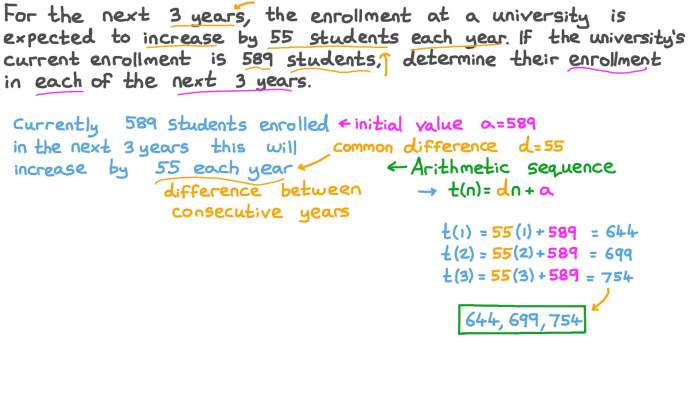 For the next 3 years, the enrollment at a university is
expected to increase by 55 students each year. If the university's
current enrollment is 589 students, determine their enrollment
in each of the next 3 years.
Currently 589 students enrolled ← initial value a=589
in the next 3 years this will common difference d=55
increase by 55 each year ← Arithmetic sequence
difference between → t(n)= dn + a
consecutive years
t(1) = 55(1) + 589 = 644
t(2) = 55(2) + 589 = 699
t(3) = 55(3) + 589 = 754
644, 699, 754